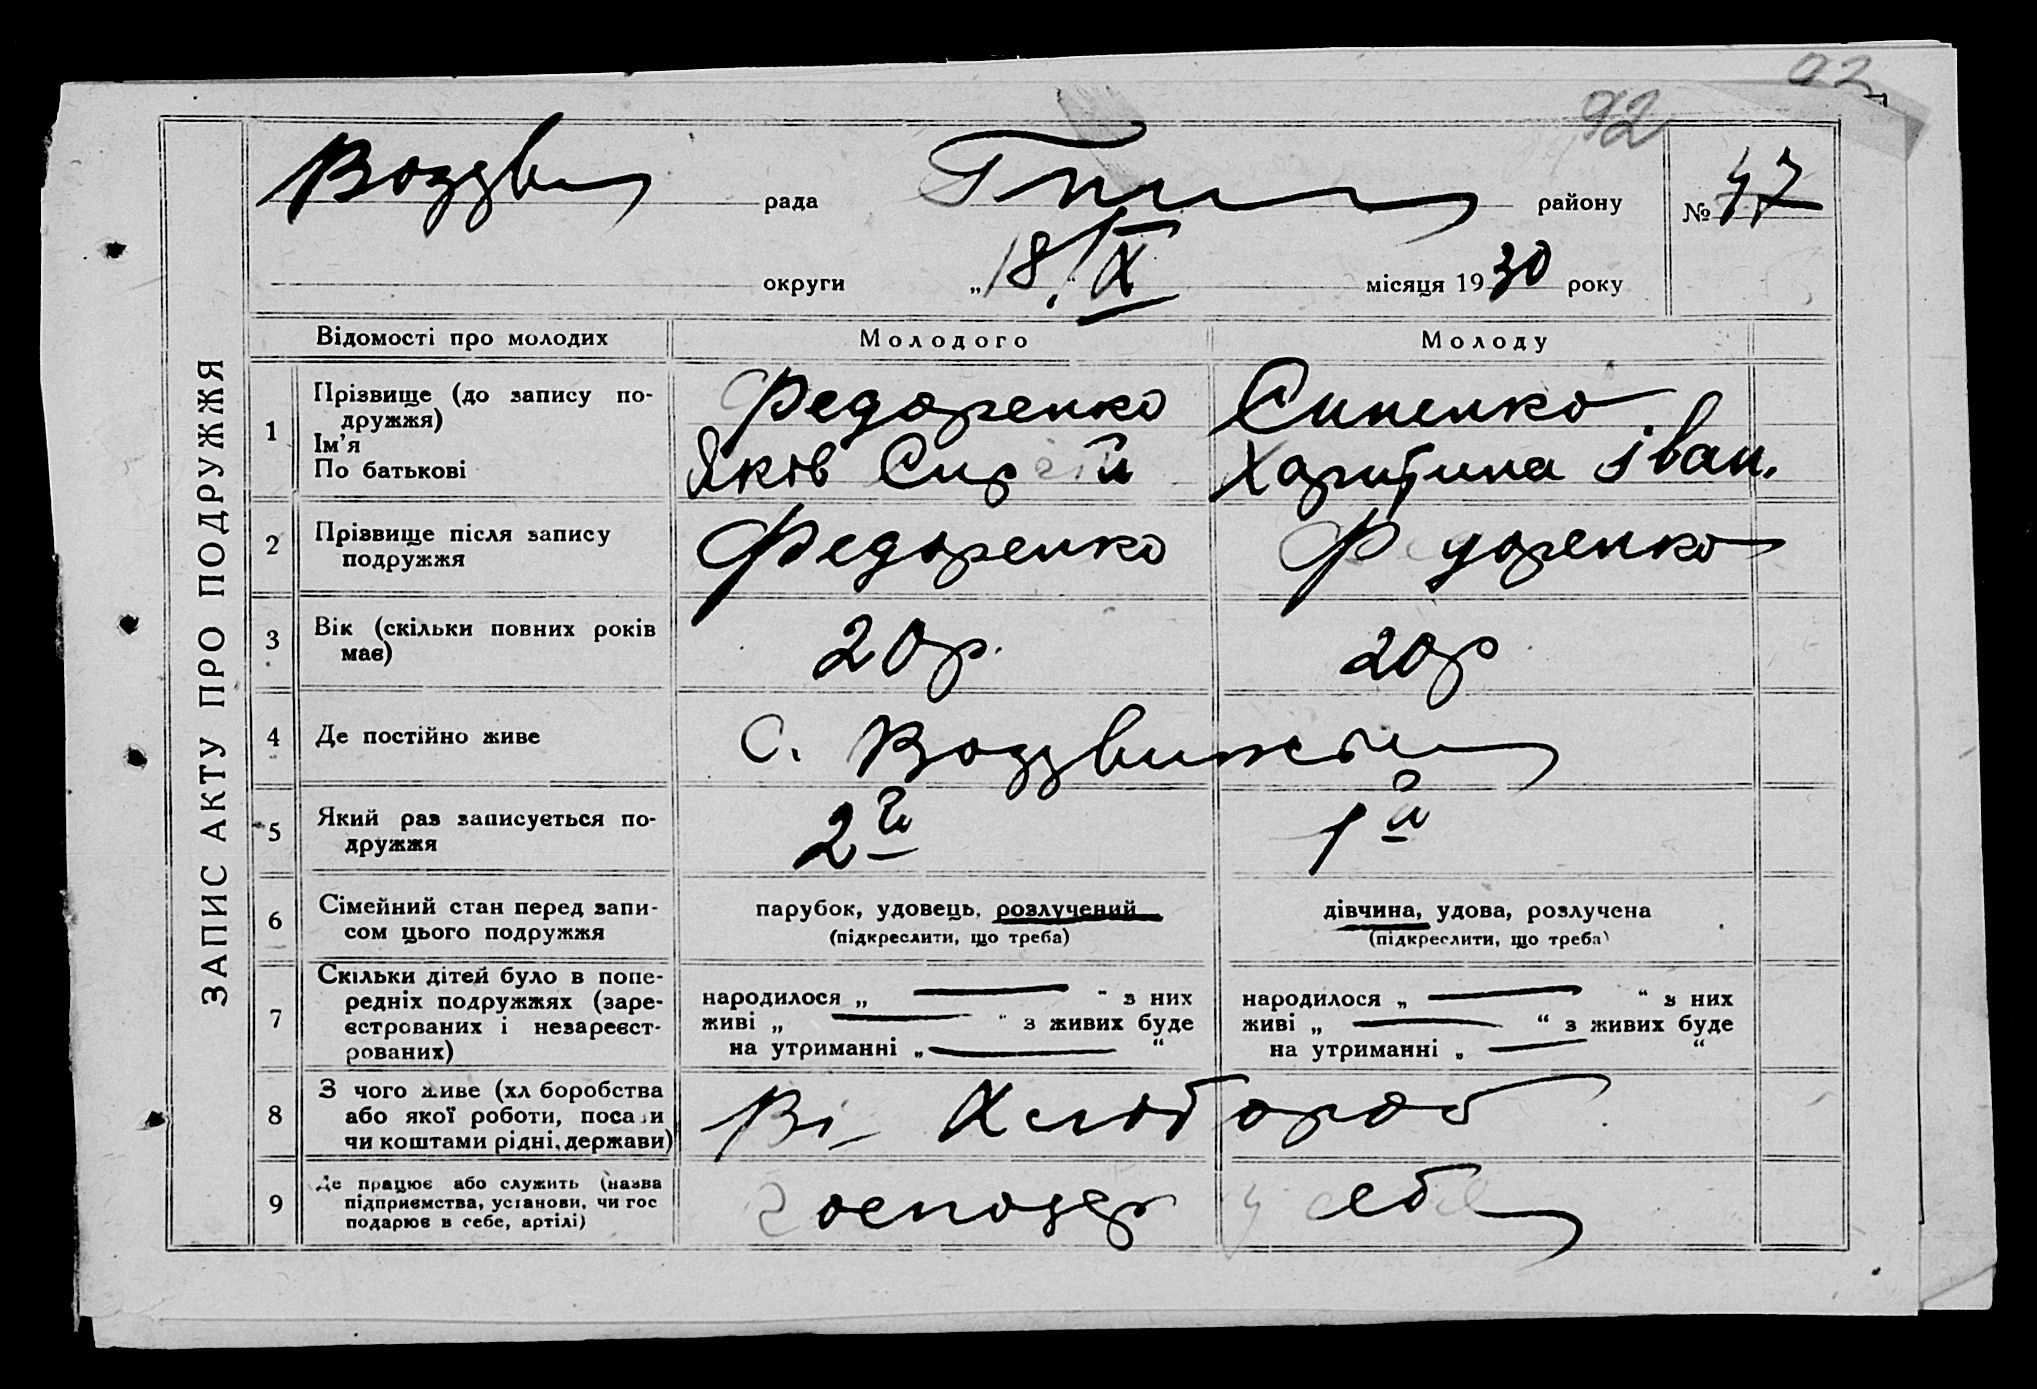 92
92
Воздв рада Гпи району № 47
округи „18.“ IX місяця 1930 року
ЗАПИС АКТУ ПРО ПОДРУЖЖЯ
Відомості про молодих Молодого Молоду
1 Прізвище (до запису по-
дружжя) Федоренко Синенко
Ім'я
По батькові Яків Сир й Харитина Іван.
2 Прізвище після запису
подружжя Федоренко Федоренко
3 Вік (скільки повних років
має) 20р. 20р
4 Де постійно живе С. Воздвиженс
5 Який раз записується по-
дружжя 2й 1й
6 Сімейний стан перед запи-
сом цього подружжя
парубок, удовець, розлучений
(підкреслити, що треба)
дівчина, удова, розлучена
(підкреслити, що треба)
7 Скільки дітей було в попе-
редніх подружжях (заре-
єстрованих і незареєст-
рованих)
народилося „ — “ з них
живі „ — “ з живих буде
на утриманні „ — “
народилося „ — “ з них
живі „ — “ з живих буде
на утриманні „ — “
8 З чого живе (хл боробства
або якої роботи, посади
чи коштами рідні, держави)
Від Хлібороб
9 Де працює або служить (назва
підприємства, установи, чи гос
подарює в себе, артілі)
господар у себе